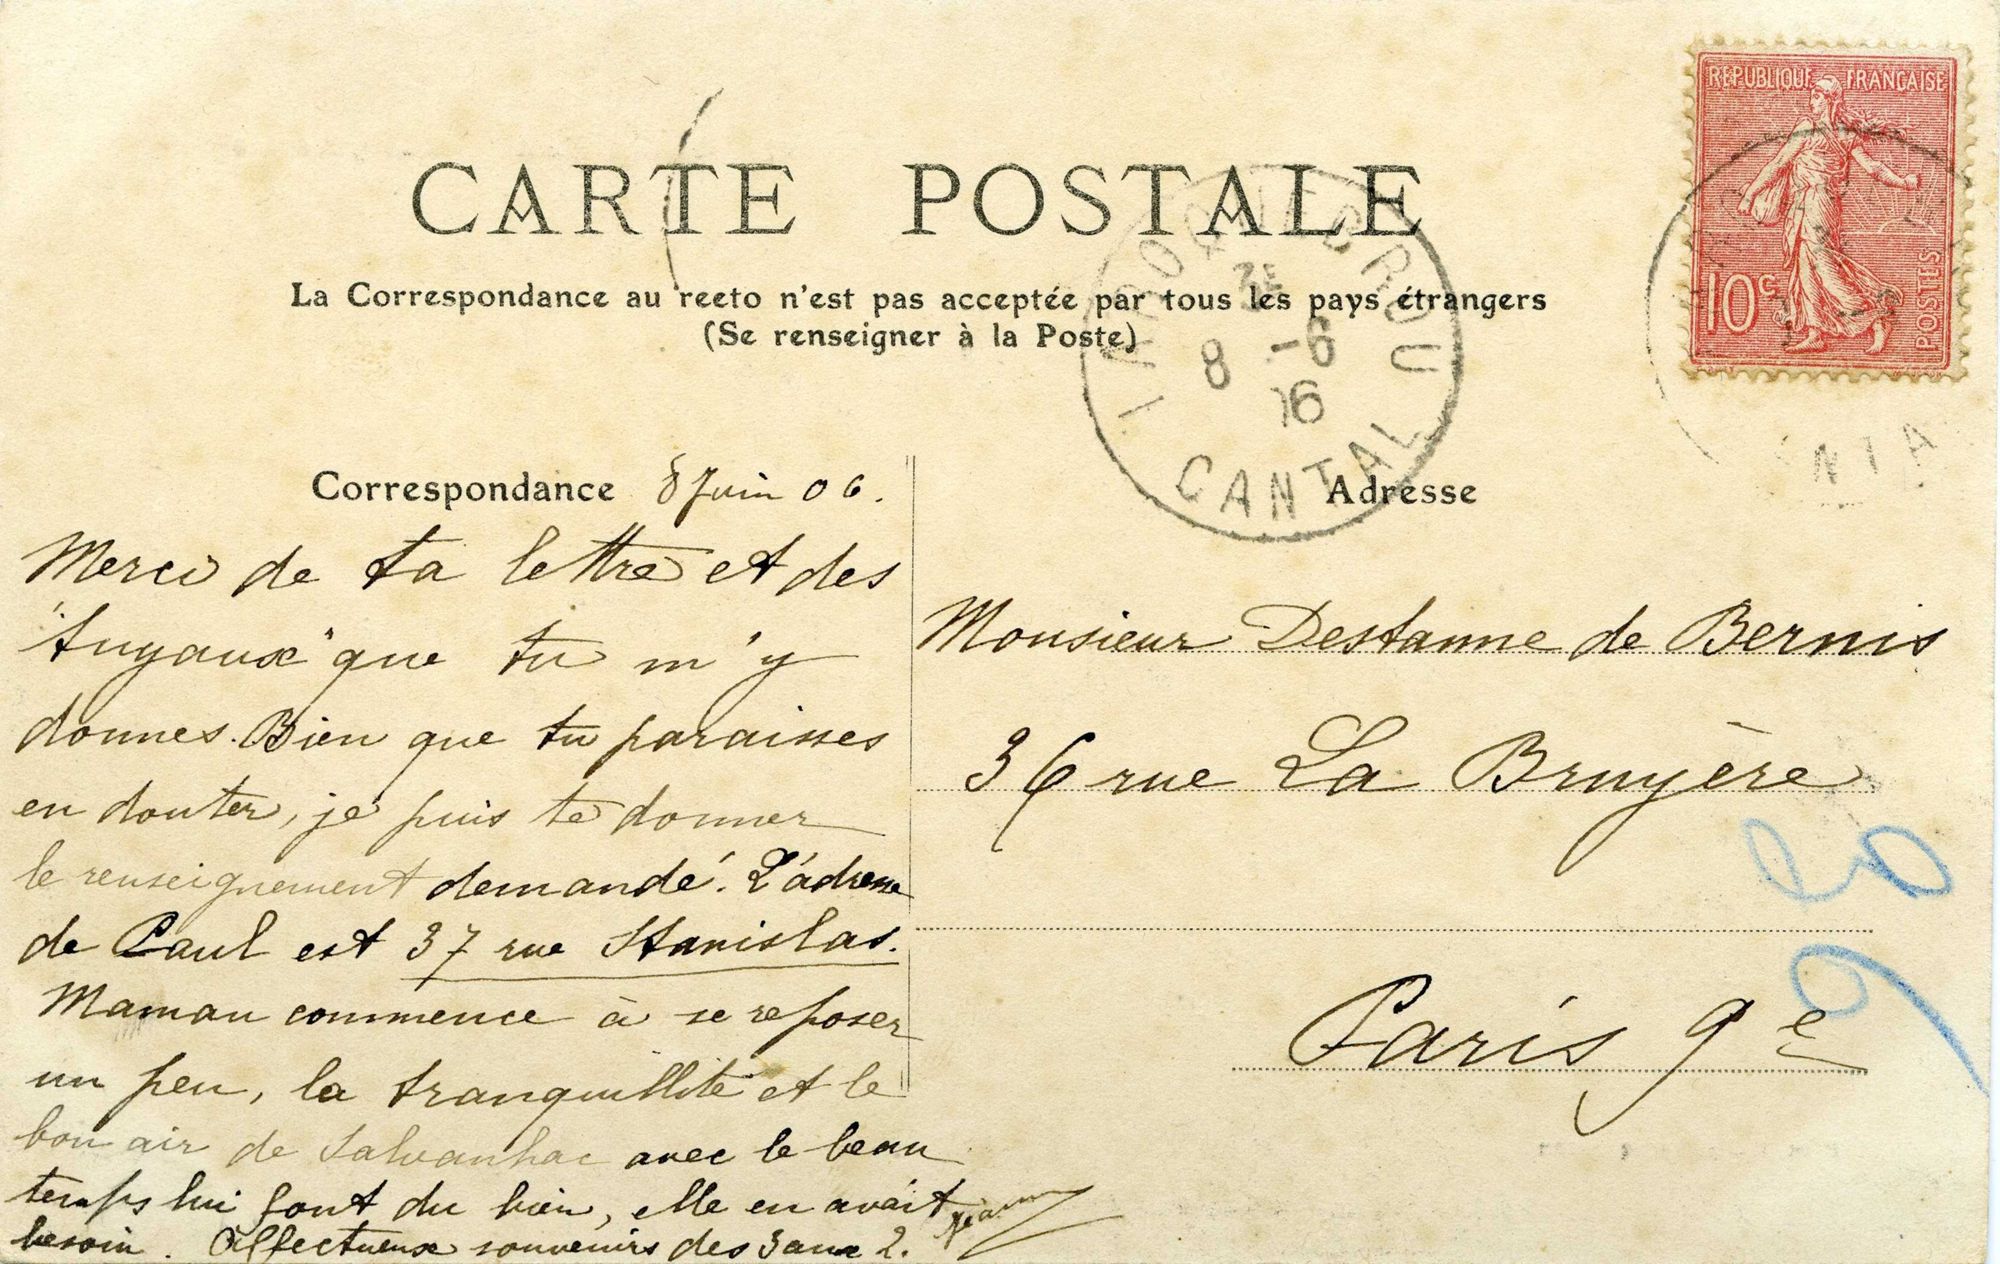 REPUBLIQUE FRANÇAISE
10c
POSTES
CARTE POSTALE
LAROQUEBROU
8 -6
06
CANTAL
La Correspondance au recto n'est pas acceptée par tous les pays étrangers
(Se renseigner à la Poste)
Correspondance 8 Juin 06.
Merci de ta lettre et des
"tuyaux" que tu m'y
donnes. Bien que tu paraisses
en douter, je puis te donner
le renseignement demandé. L'adresse
de Paul est 37 rue Stanislas.
Maman commence à se reposer
un peu, la tranquillité et le
bon air de Salvanhac avec le beau
temps lui font du bien, elle en avait
besoin. Affectueux souvenirs des 3 aux 2.
Adresse
Monsieur Destanne de Bernis
36 rue La Bruyère
Paris 9e